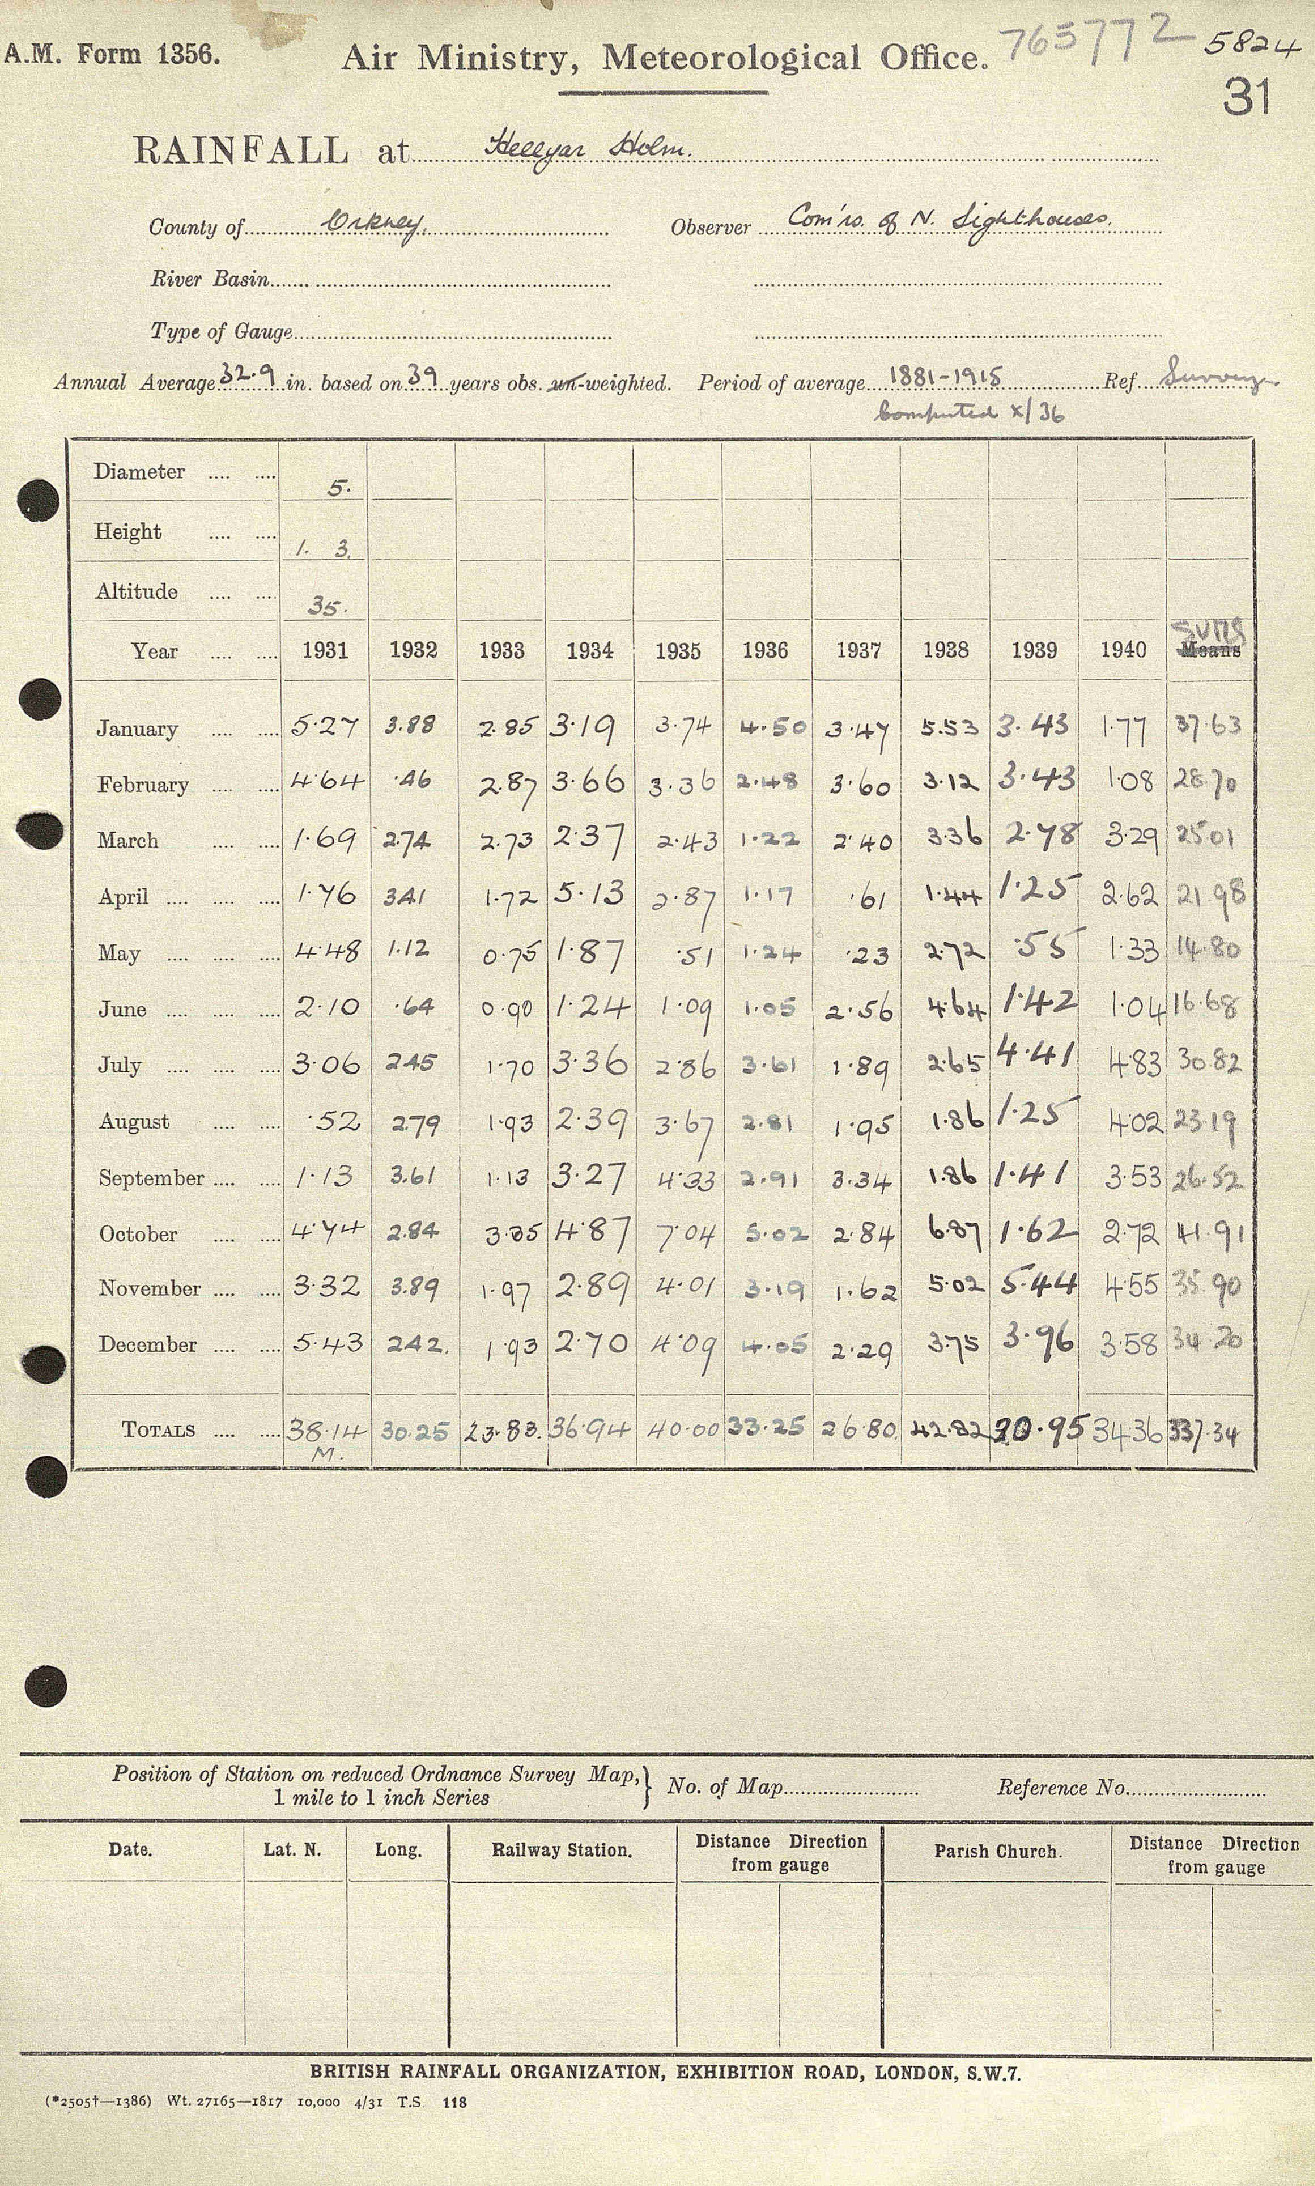 A.M. Form 1356. Air Ministry, Meteorological Office. 765772 5824
31
RAINFALL at Hellyar Holm.
County of Orkney. Observer Com'rs. of N. Lighthouses.
River Basin
Type of Gauge
Annual Average 32.9 in. based on 39 years obs. un-weighted. Period of average 1881-1915 Ref. Survey
Computed X/36
Diameter 5.
Height 1. 3.
Altitude 35.
SUMS
Year 1931 1932 1933 1934 1935 1936 1937 1938 1939 1940 Means
January 5.27 3.88 2.85 3.19 3.74 4.50 3.47 5.53 3.43 1.77 37.63
February 4.64 .46 2.87 3.66 3.36 2.48 3.60 3.12 3.43 1.08 28.70
March 1.69 2.74 2.73 2.37 2.43 1.22 2.40 3.36 2.78 3.29 25.01
April 1.76 3.41 1.72 5.13 2.87 1.17 .61 1.44 1.25 2.62 21.98
May 4.48 1.12 0.75 1.87 .51 1.24 .23 2.72 .55 1.33 14.80
June 2.10 .64 0.90 1.24 1.09 1.05 2.56 4.64 1.42 1.04 16.68
July 3.06 2.45 1.70 3.36 2.86 3.61 1.89 2.65 4.41 4.83 30.82
August .52 2.79 1.93 2.39 3.67 2.81 1.95 1.86 1.25 4.02 23.19
September 1.13 3.61 1.13 3.27 4.33 2.91 3.34 1.86 1.41 3.53 26.52
October 4.74 2.84 3.35 4.87 7.04 5.02 2.84 6.87 1.62 2.72 41.91
November 3.32 3.89 1.97 2.89 4.01 3.19 1.62 5.02 5.44 4.55 35.90
December 5.43 2.42. 1.93 2.70 4.09 4.05 2.29 3.75 3.96 3.58 34.20
TOTALS 38.14 30.25 23.83. 36.94 40.00 33.25 26.80. 42.82 30.95 34.36 337.34
M.
Position of Station on reduced Ordnance Survey Map,} No. of Map Reference No.
1 mile to 1 inch Series
Date. Lat. N. Long. Railway Station. Distance Direction from gauge Parish Church. Distance Direction from gauge
BRITISH RAINFALL ORGANIZATION, EXHIBITION ROAD, LONDON, S.W.7.
(*2505†—1386) Wt. 27165—1817 10,000 4/31 T.S. 118